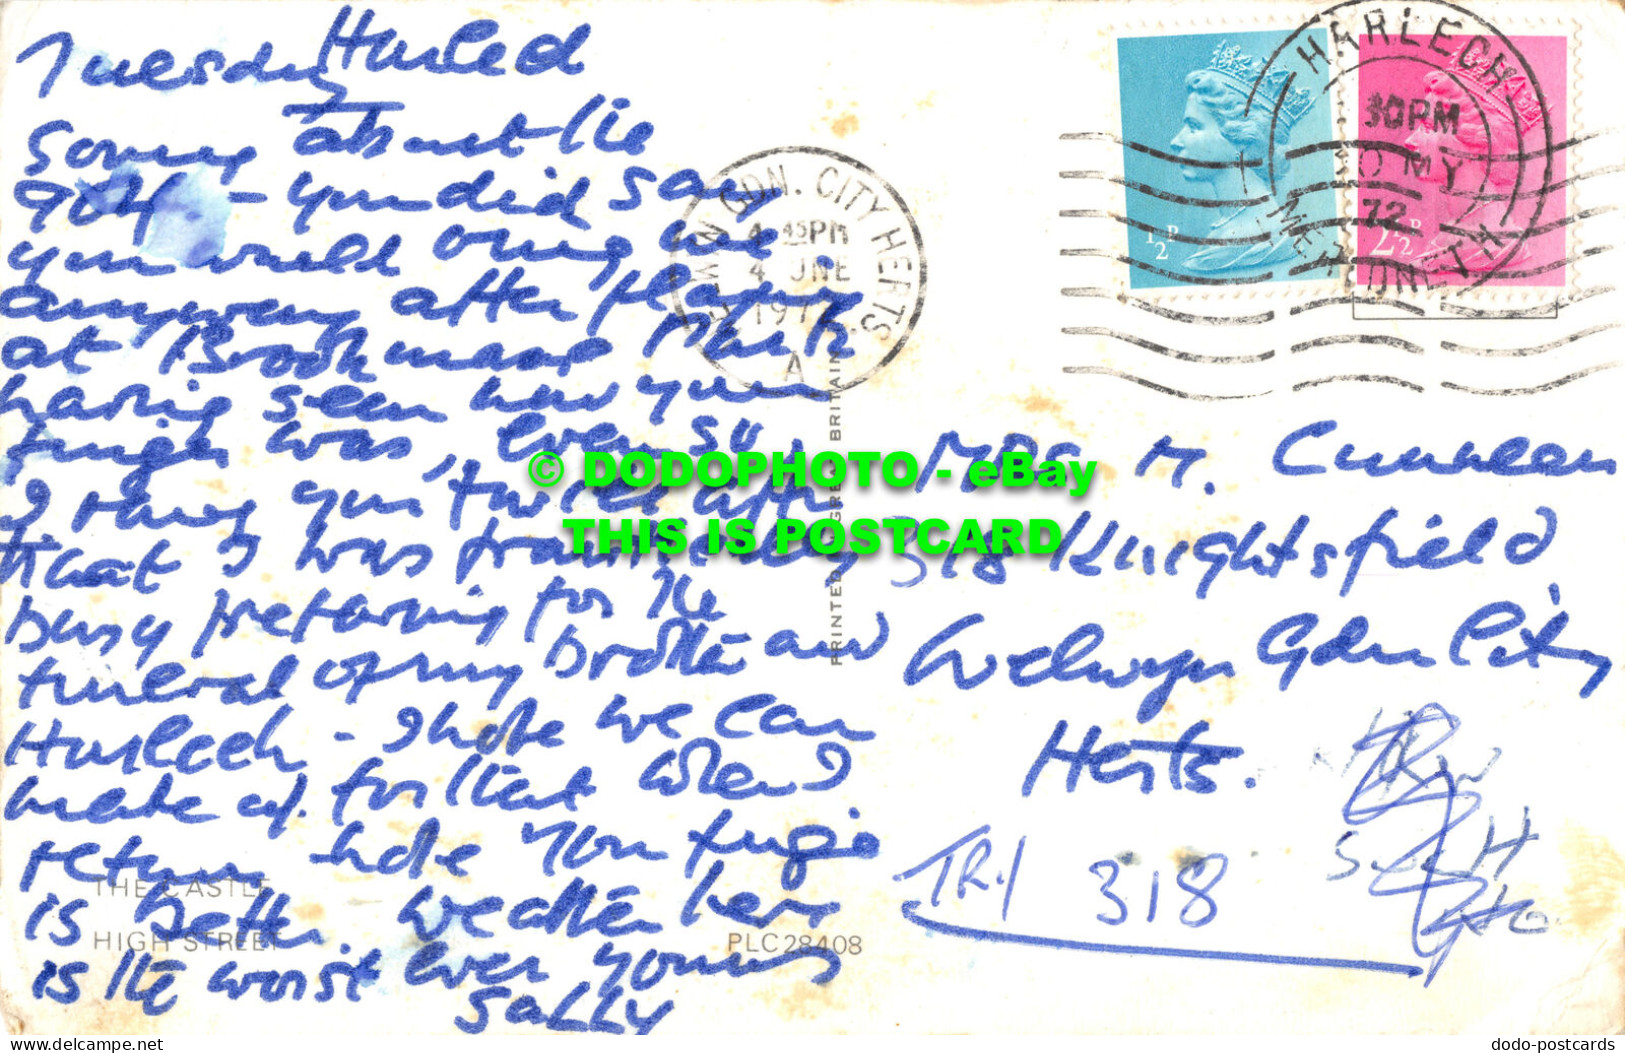 Tuesday Harlech
Sorry about the
golf - you did say
you would ring me
anyway after playing
at Brookmans Park
having seen how your
finger was, even so,
I rang you twice after
that I was frantically
busy preparing for the
funeral of my brother and
Harlech - I hope we can
make up for that when I
return hope your finger
is better weather here
is the worst ever yours
SALLY
THE CASTLE
HIGH STREET
PLC28408
PRINTED IN GREAT BRITAIN
WELWYN GDN. CITY HERTS
4 45PM
4 JNE
A
HARLECH
30PM
MY
72
MERIONETH
½P
2½P
MRS M.
318 Knightsfield
Welwyn Gdn City
Herts.
TRY 318
© DODOPHOTO - eBay
THIS IS POSTCARD
www.delcampe.net
dodo-postcards